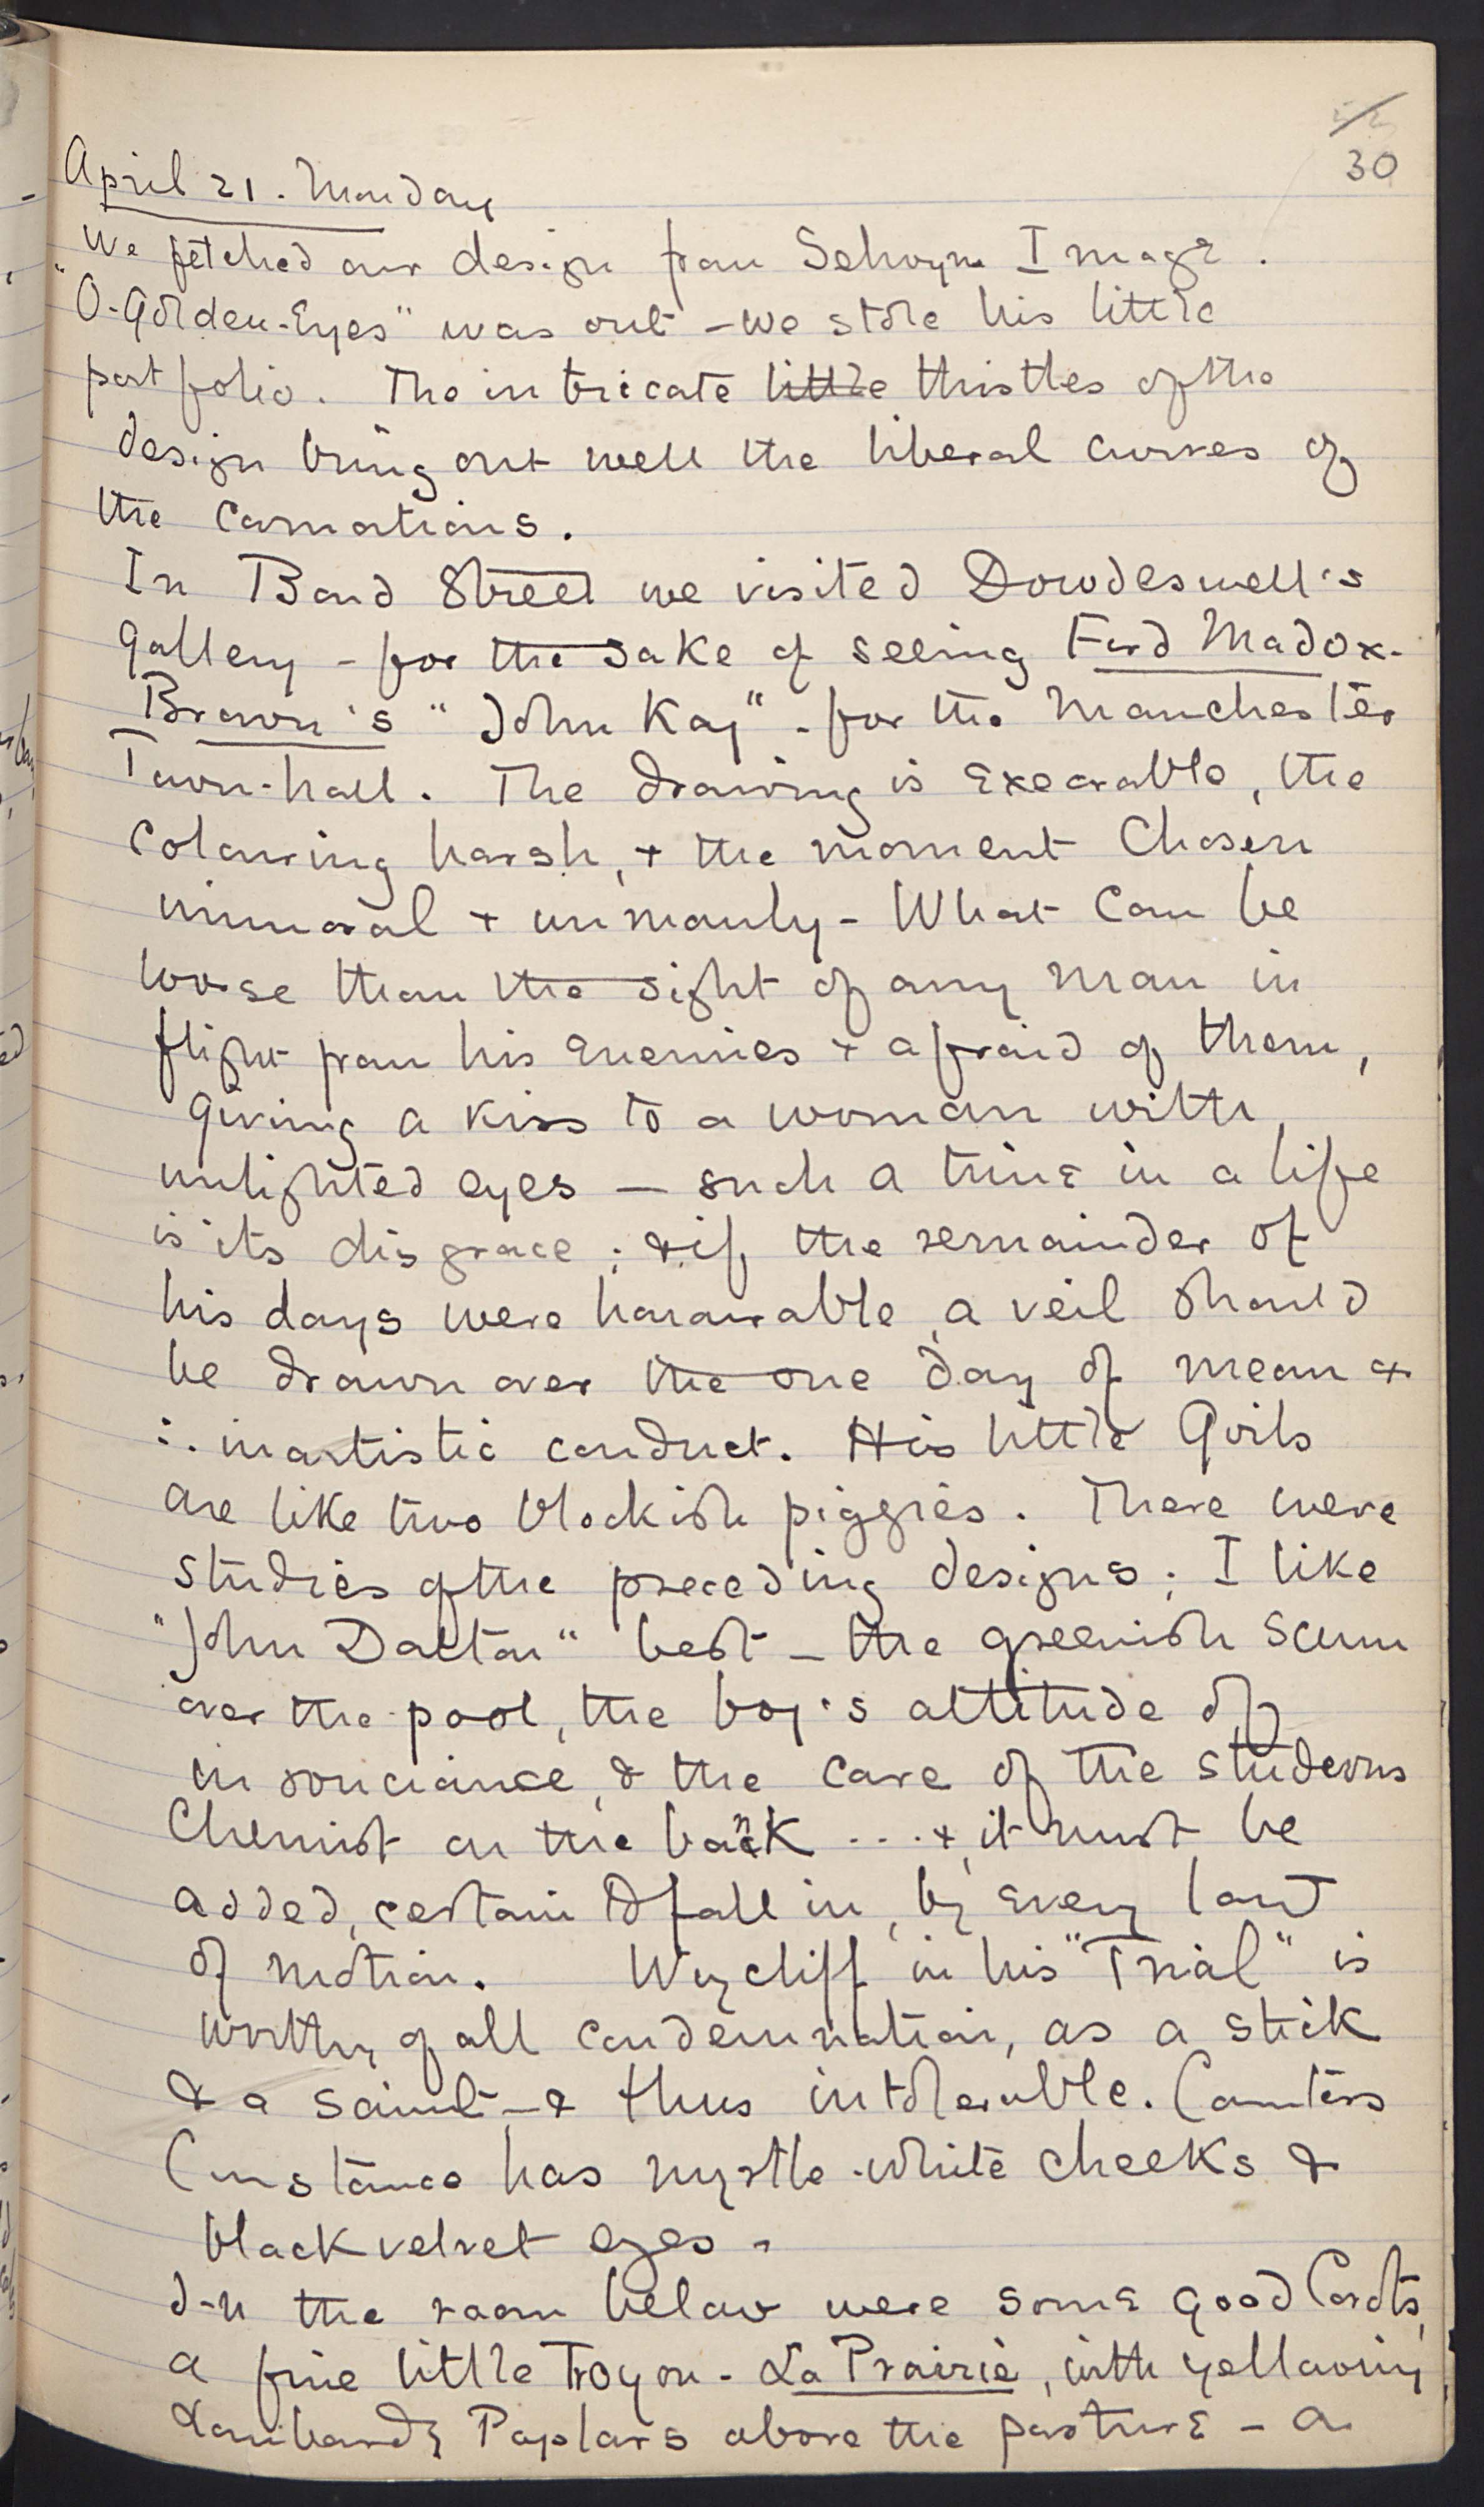 30
April 21. Monday
We fetched our design from Selwyn Image.
"O-Golden-Eyes" was out - we stole his little
portfolio. The intricate little thistles of the
design bring out well the liberal curves of
the Carnations.
In Bond Street we visited Dowdeswell's
Gallery - for the sake of seeing Ford Madox-
Brown's "John Kay" - for the Manchester
Town-hall. The drawing is execrable, the
colouring harsh, + the moment chosen
immoral + unmanly - What can be
worse than the sight of any man in
flight from his enemies + afraid of them,
giving a kiss to a woman with
unlighted eyes — such a time in a life
is its disgrace; & if the remainder of
his days were honourable, a veil should
be drawn over the one day of mean &
∴ inartistic conduct. His little Girls
are like two blockish piggies. There were
studies of the preceding designs; I like
"John Dalton" best - the greenish scum
over the pool, the boy's attitude of
insouciance, & the care of the studious
Chemist on the bank .... +, it must be
added, certain to fall in, by every law
of motion. Wycliff in his "Trial" is
worthy of all condemnation, as a stick
& a saint - & thus intolerable. Countess
Constance has myrtle-white cheeks &
black velvet eyes.
In the room below were some good Corots,
a fine little Troyon - La Prairie, with yellowing
Lombardy Poplars above the pasture - a